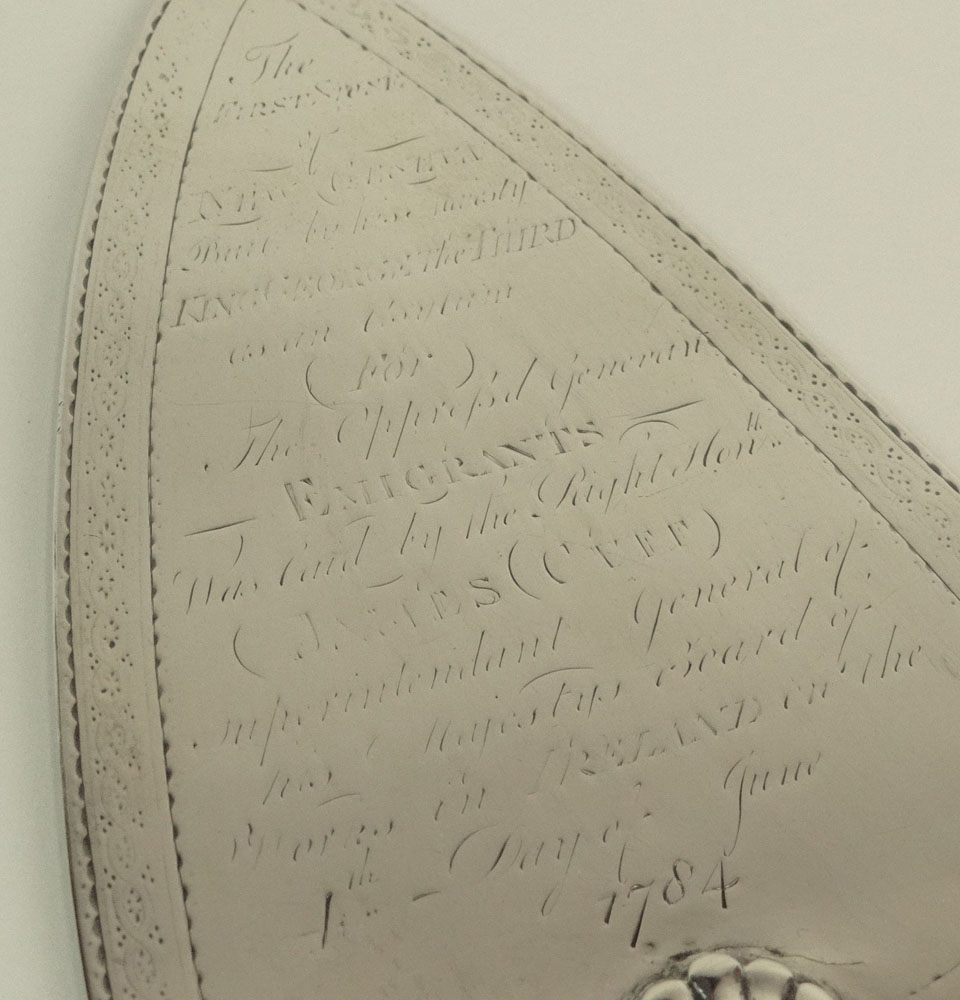 The
FIRST STONE
of
NEW GENEVA
Built by his Majesty
KING GEORGE The THIRD
as an Asylum
(For)
The Oppress'd Genevan
EMIGRANTS
Was laid by the Right Hon.ble
(JAMES (CUFF)
Superintendant General of
his Majestys Board of
Works in IRELAND on the
Day of June
1784